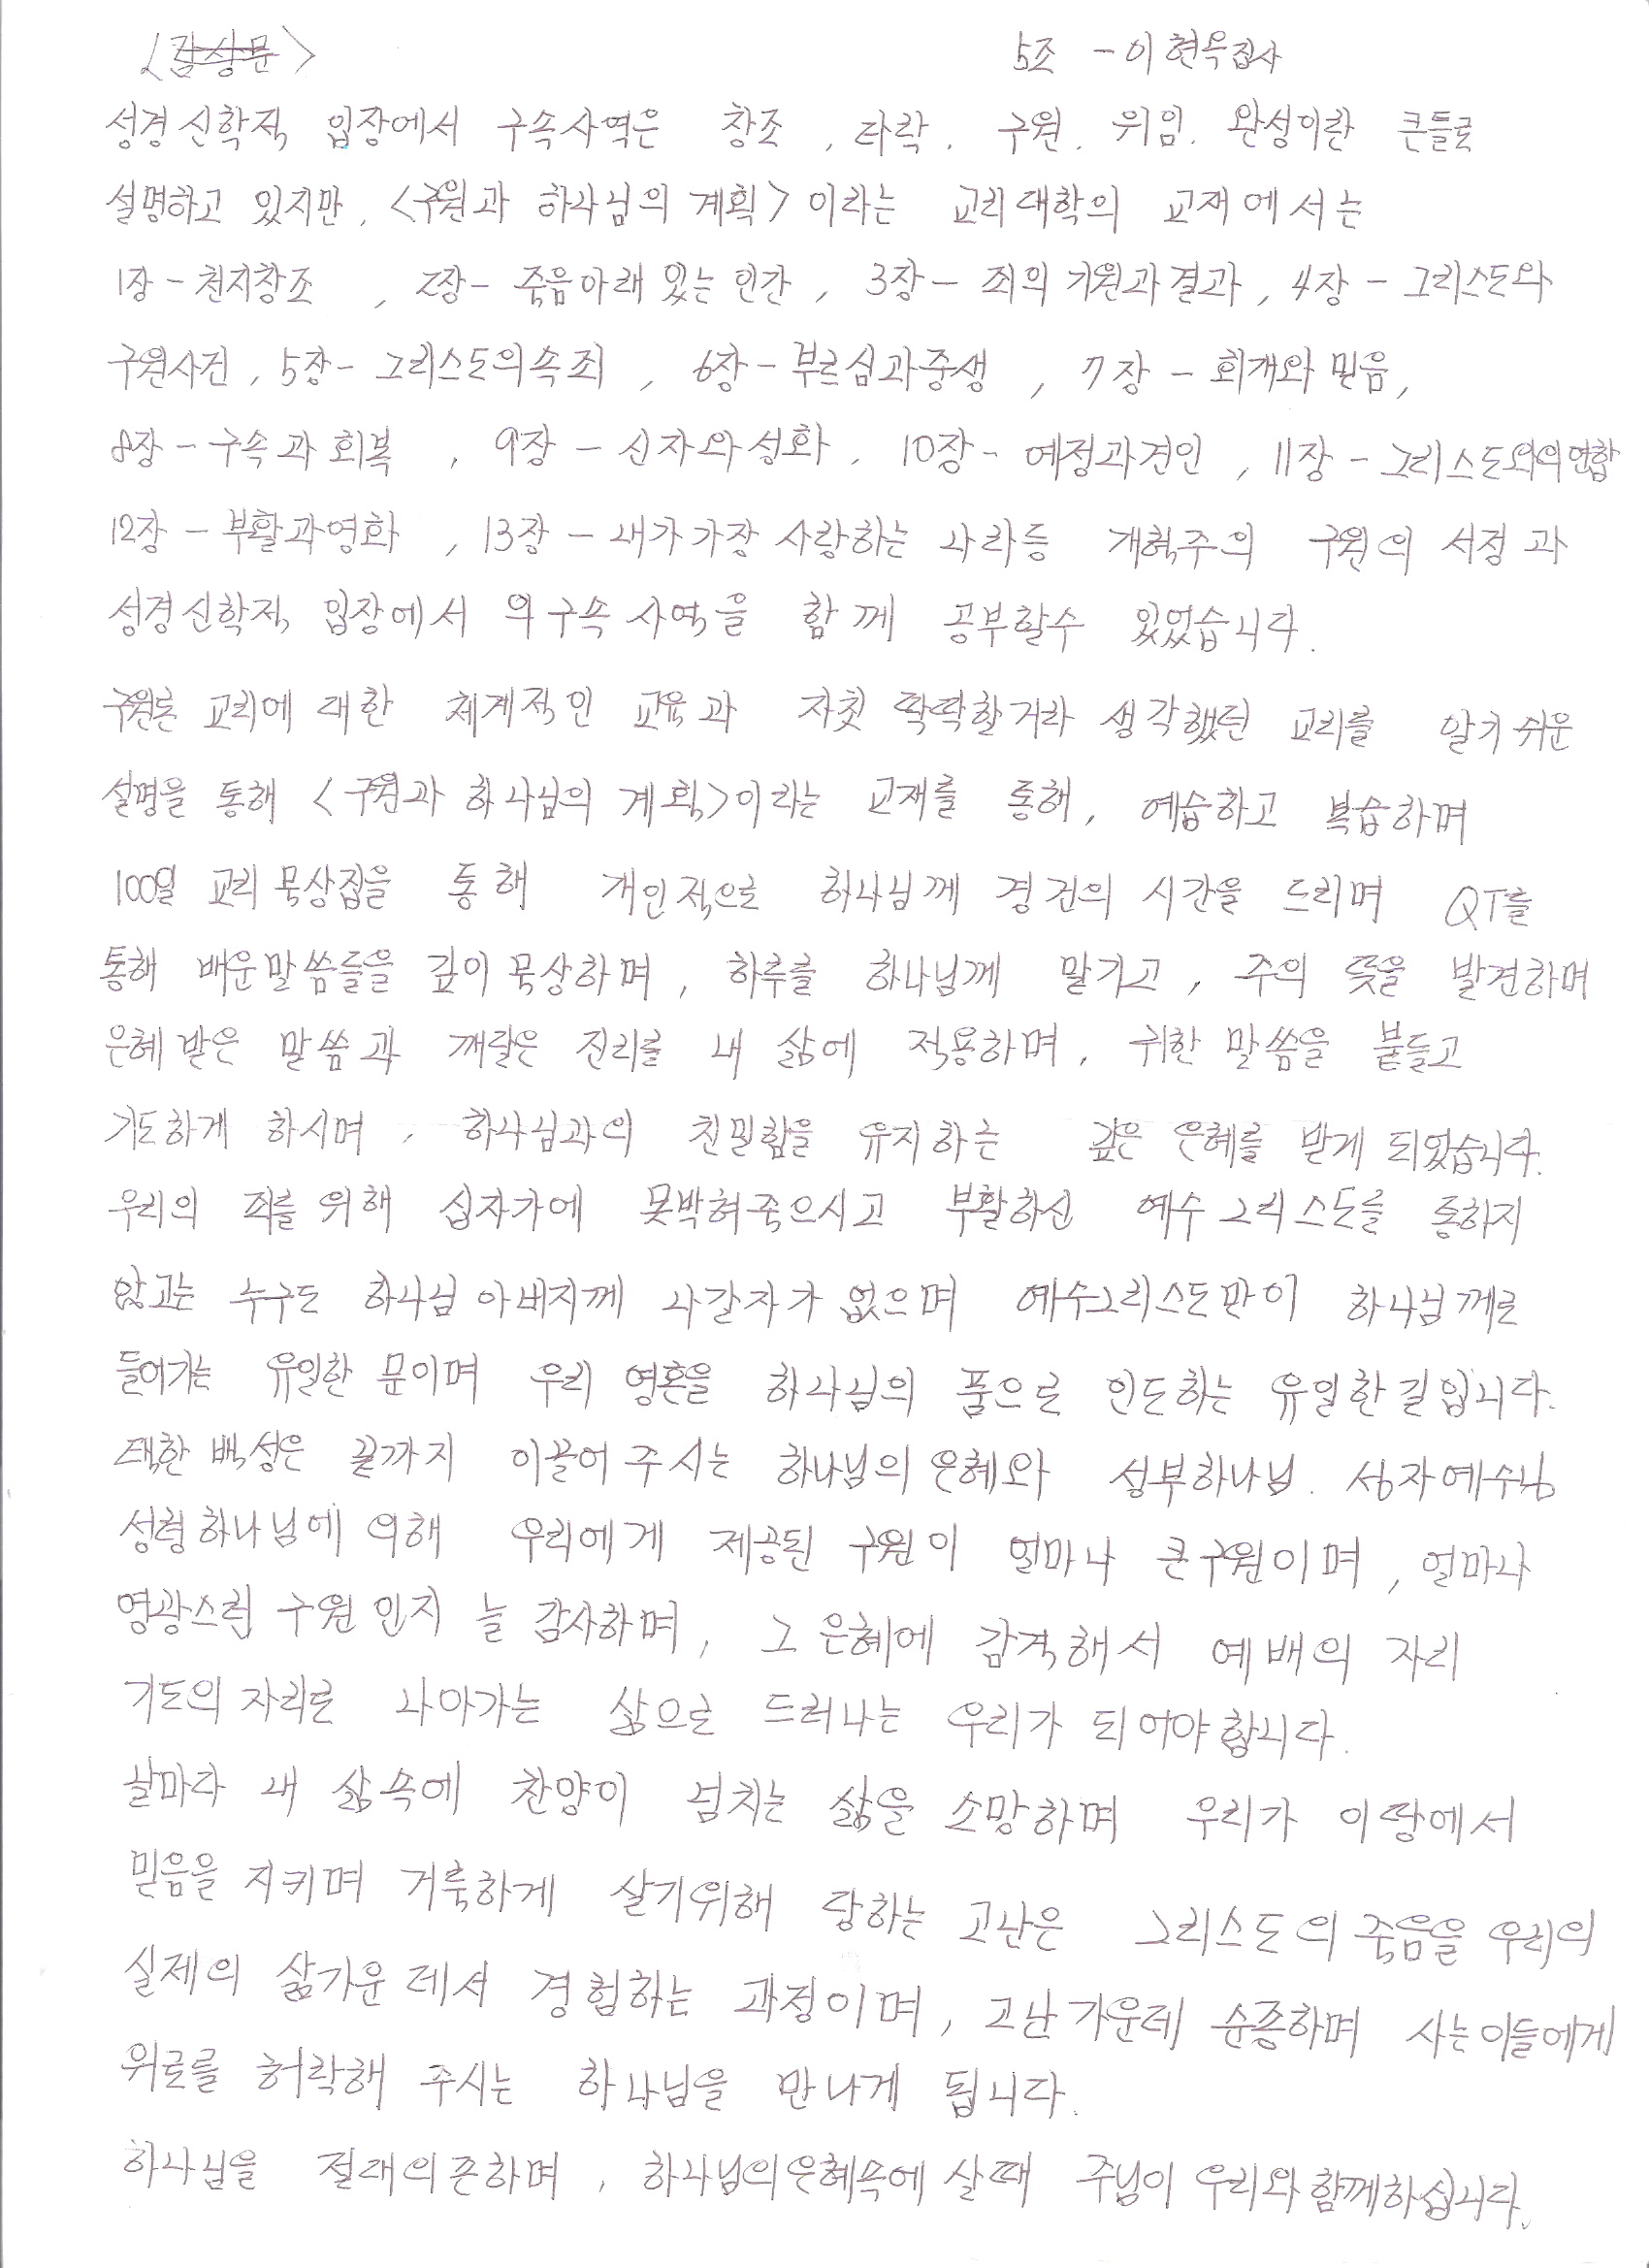 <감상문> 5조 - 이현옥집사
성경신학적 입장에서 구속사역은 창조, 타락, 구원, 위임, 완성이란 큰틀로
설명하고 있지만, <구원과 하나님의 계획>이라는 교리대학의 교재에서는
1장 - 천지창조, 2장 - 죽음아래 있는 인간, 3장 - 죄의 기원과 결과, 4장 - 그리스도와
구원사건, 5장 - 그리스도의속죄, 6장 - 부르심과중생, 7장 - 회개와 믿음,
8장 - 구속과 회복, 9장 - 신자와성화, 10장 - 예정과견인, 11장 - 그리스도와의연합
12장 - 부활과영화, 13장 - 내가가장 사랑하는 나라등 개혁주의 구원의 서정과
성경신학적 입장에서의구속 사역을 함께 공부할수 있었습니다.
구원론 교리에 대한 체계적인 교육과 자칫 딱딱할거라 생각했던 교리를 알기 쉬운
설명을 통해 <구원과 하나님의 계획>이라는 교재를 통해, 예습하고 복습하며
100일 교리묵상집을 통해 개인적으로 하나님께 경건의 시간을 드리며 QT를
통해 배운말씀들을 깊이묵상하며, 하루를 하나님께 맡기고, 주의 뜻을 발견하며
은혜 받은 말씀과 깨달은 진리를 내 삶에 적용하며, 귀한 말씀을 붙들고
기도하게 하시며, 하나님과의 친밀함을 유지하는 깊은 은혜를 받게 되었습니다.
우리의 죄를 위해 십자가에 못박혀죽으시고 부활하신 예수그리스도를 통하지
않고는 누구도 하나님아버지께 나갈자가 없으며 예수그리스도만이 하나님께로
들어가는 유일한 문이며 우리 영혼을 하나님의 품으로 인도하는 유일한길입니다.
택한 백성은 끝까지 이끌어주시는 하나님의 은혜와 성부하나님. 성자예수님
성령하나님에 의해 우리에게 제공된 구원이 얼마나 큰구원이며, 얼마나
영광스런 구원인지 늘 감사하며, 그 은혜에 감격해서 예배의 자리
기도의자리로 나아가는 삶으로 드러나는 우리가 되어야합니다.
날마다 내 삶속에 찬양이 넘치는 삶을 소망하며 우리가 이땅에서
믿음을 지키며 거룩하게 살기위해 당하는 고난은 그리스도의 죽음을 우리의
실제의 삶가운데서 경험하는 과정이며, 고난가운데 순종하며 사는이들에게
위로를 허락해 주시는 하나님을 만나게 됩니다.
하나님을 절대의존하며, 하나님의은혜속에 살때 주님이 우리와함께하십니다.